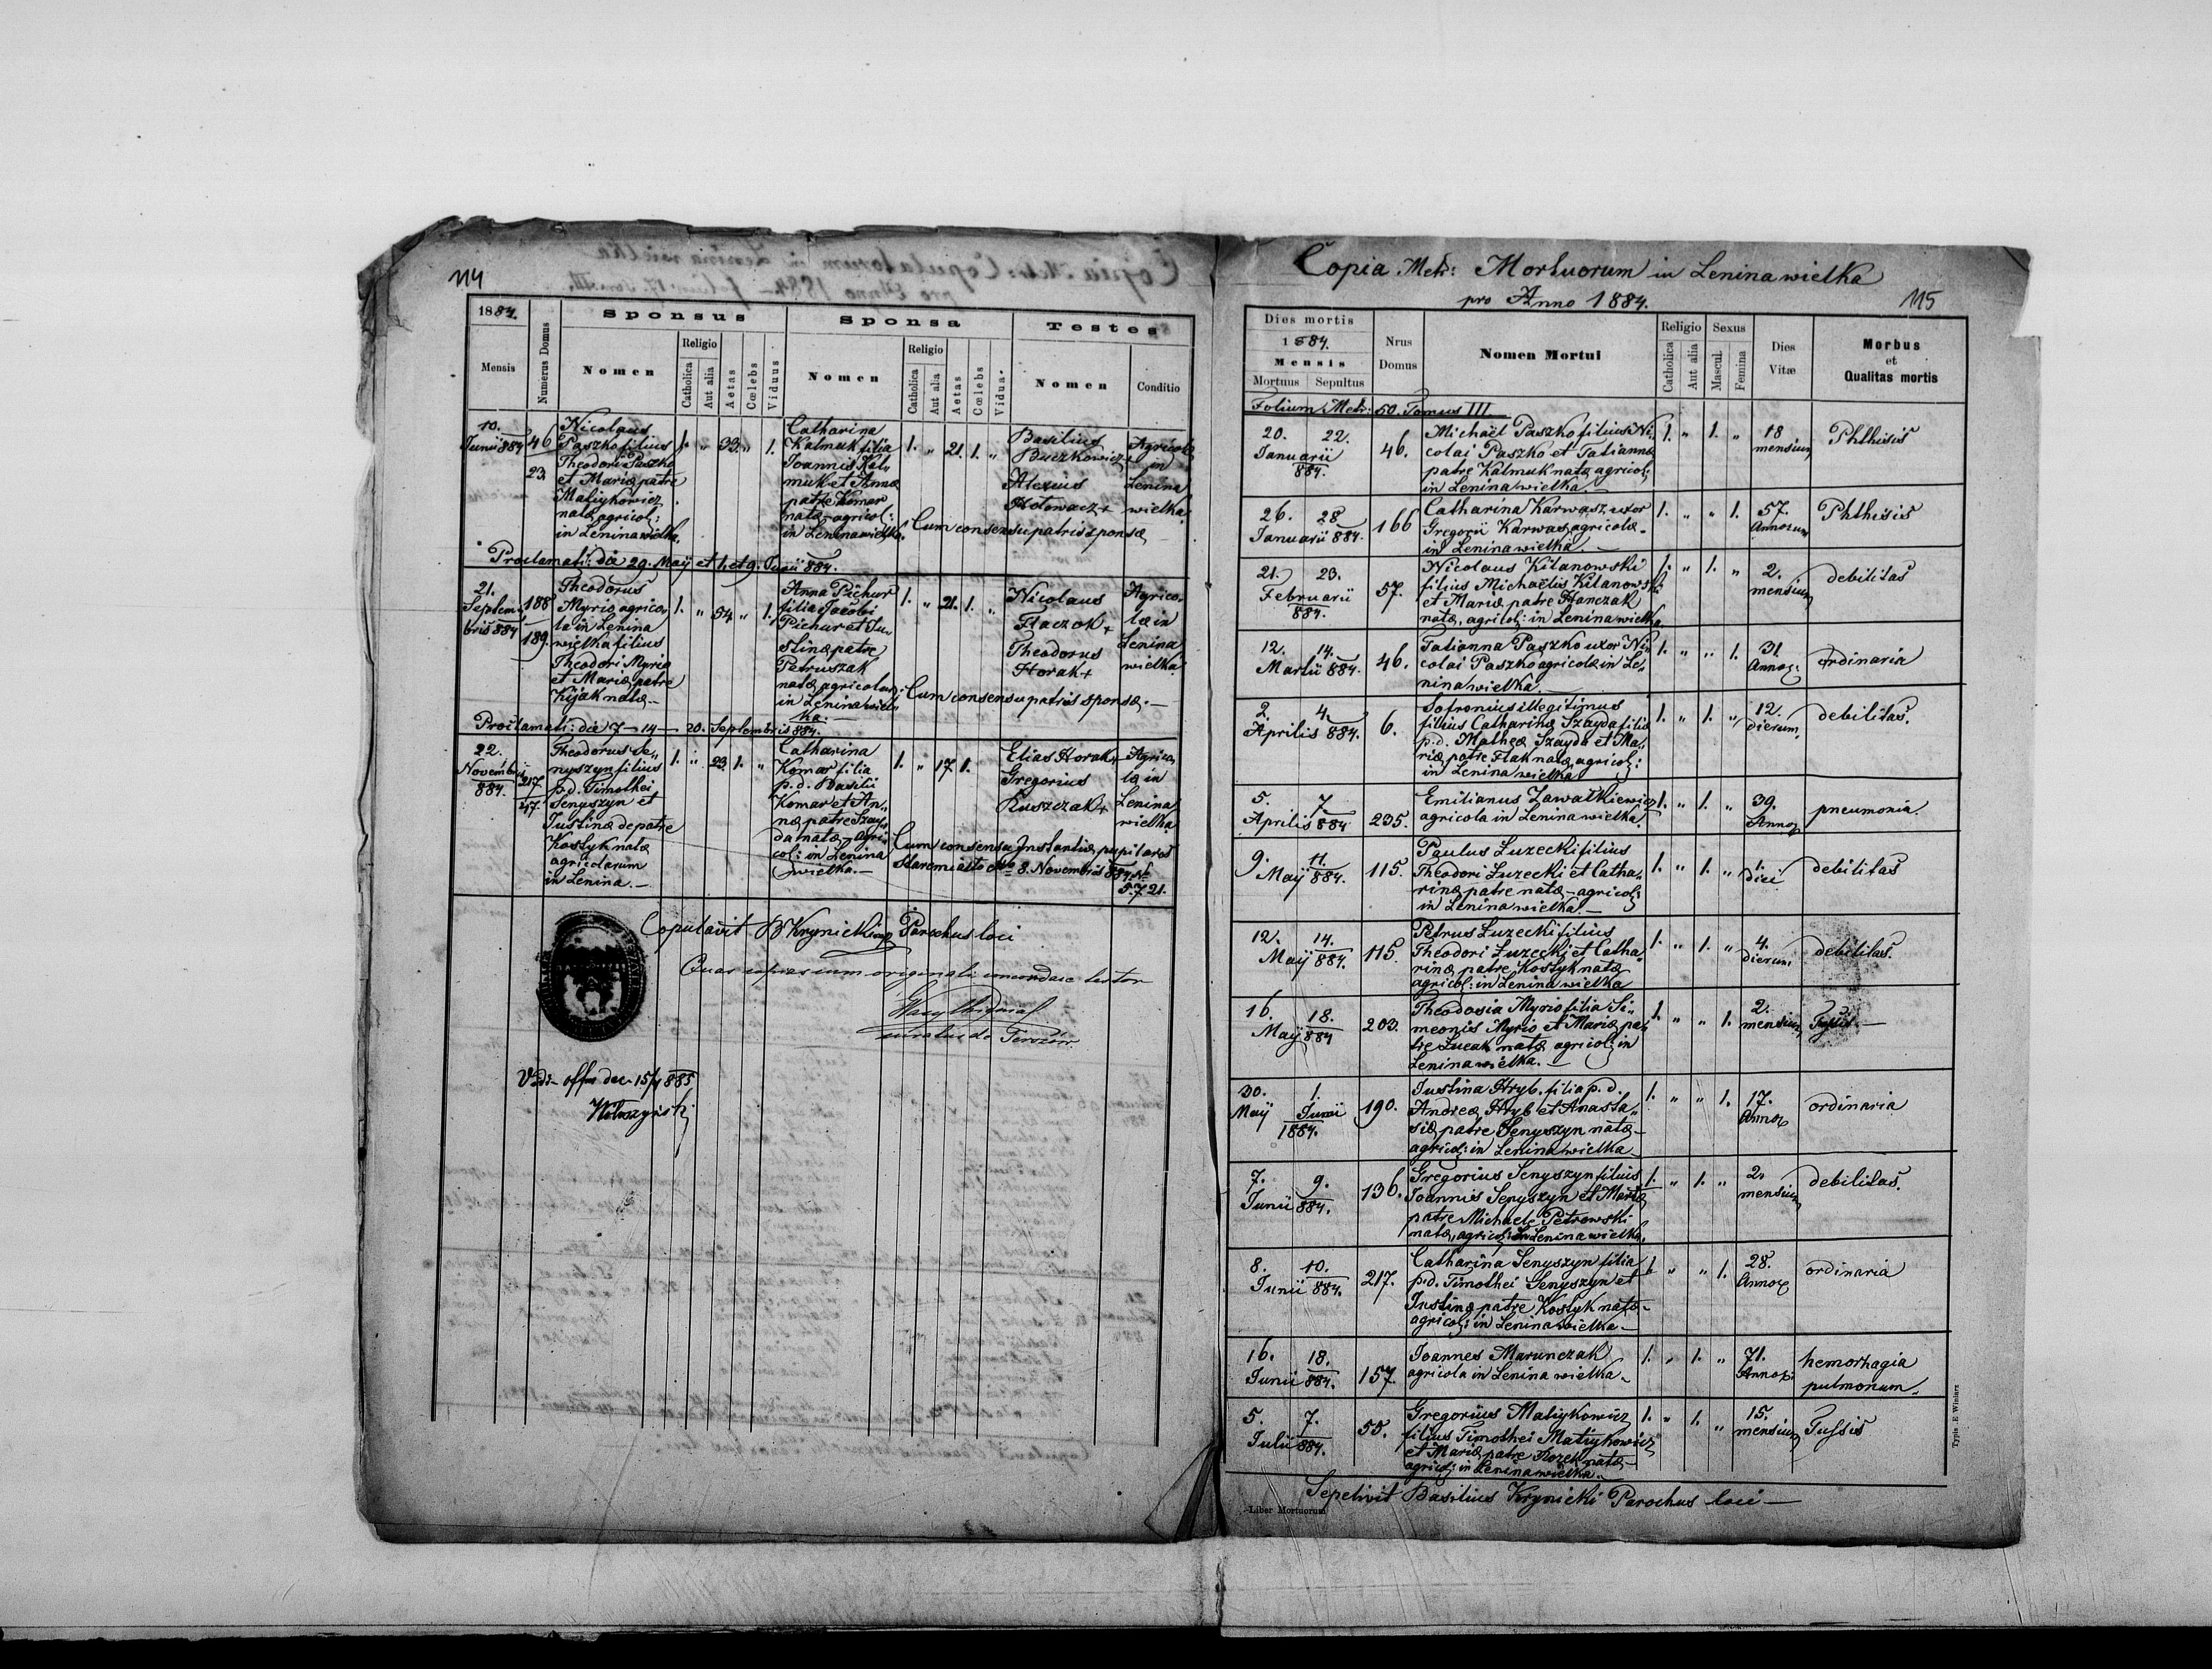 114
1884.
Mensis
Numerus Domus
Sponsus
Nomen
Religio
Catholica
Aut alia
Aetas
Cœlebs
Viduus
Sponsa
Nomen
Religio
Catholica
Aut alia
Aetas
Cœlebs
Vidua
Testes
Nomen
Conditio
10.
Junii 884
46
23
Nicolaus
Paszko filius
Theodori Paszko
et Mariæ patre
Matiykowicz
natæ agricol:
in Lenina wielka.
1. " 33. " 1.
Catharina
Kalmuk filia
Joannis Kal„
muk et Annæ
patre Komar
natæ agricol:
in Lenina wielka.
1. " 21. 1. "
Basilius
Buczkowicz +
Alexius
Hołowacz +
Agricolæ
in
Lenina
wielka.
Cum consensu patris sponsæ —
Proclamati: die 29. Maÿ et 1. et 9. Junii 884.
21.
Septem„
bris 884
188
189.
Theodorus
Myrio agrico„
la in Lenina
wielka filius
Theodori Myrio
et Mariæ patre
Kijak natæ —
1. " 54 " 1.
Anna Pichur
filia Jacobi
Pichur et Ju„
stinæ patre
Petruszak
natæ agricolar:
in Lenina wiel„
ka. —
1. " 21. 1. "
Nicolaus
Tkaczok +
Theodorus
Horak +
Agrico„
læ in
Lenina
wielka.
Cum consensu patris sponsæ. —
Proclamati: die 7 — 14 — 20. Septembris 884.
22.
Novembris
884.
217.
217.
Theodorus Se„
nyszyn filius
p.d. Timothei
Senyszyn et
Justinæ de patre
Kostyk natæ
agricolarum
in Lenina. —
1. " 23. 1. "
Catharina
Komar filia
p.d. Basilii
Komar et An„
næ patre Szay„
da natæ — agri„
col: in Lenina
wielka. —
1. " 17. 1.
Elias Horak +
Gregorius
Kuszczak +
Agrico„
læ in
Lenina
wielka
Cum consensu Instantiæ pupilaris
Staremiasto dto 8. Novembris 884. №
5721.
Copulavit B Krynicki mp Parochus loci
Quas copias cum originali concordare testor
Vidi offm dec. 15/4 885
Copia Metr: Mortuorum in Lenina wielka
pro Anno 1884.
115
Dies mortis
1884.
Mensis
Mortuus Sepultus
Nrus
Domus
Nomen Mortui
Religio
Catholica
Aut alia
Sexus
Mascul.
Femina
Dies
Vitæ
Morbus
et
Qualitas mortis
Folium Metr: 50. Tomus III.
20. 22.
Januarii
884.
46.
Michaël Paszko filius Ni„
colai Paszko et Tatiannæ
patre Kalmuk natæ agricol:
in Lenina wielka. —
1. " 1. "
18
mensium
Phthisis
26. 28
Januarii 884.
166
Catharina Karwasz uxor
Gregorii Karwasz agricolæ
in Lenina wielka. —
1. " " 1.
57.
Annorum
Phthisis
21. 23.
Februarii
884.
57.
Nicolaus Kitanowski
filius Michaëlis Kitanowski
et Mariæ patre Hanczak
natæ, agricol: in Lenina wielka.
1. " 1. "
2.
mensium
debilitas
12. 14.
Martii 884.
46.
Tatianna Paszko uxor Ni„
colai Paszko agricolæ in Le„
nina wielka. —
1. " " 1.
31
Annor:
ordinaria
2. 4.
Aprilis 884.
6.
Sofronius illegitimus
filius Catharinæ Szayda filiæ
p.d. Matheæ Szayda et Ma„
riæ patre Flak natæ, agricol:
in Lenina wielka
1. " 1. "
12.
dierum.
debilitas.
5. 7.
Aprilis 884
235.
Emilianus Zawałkiewicz
agricola in Lenina wielka.
1. " 1. "
39.
Annor
pneumonia.
9. 11.
Maÿ 884.
115.
Paulus Łuzecki filius
Theodori Łuzecki et Catha„
rinæ patre natæ — agricol:
in Lenina wielka. —
1. " 1. "
1.
diei
debilitas
12. 14.
Maÿ 884.
115.
Petrus Łuzecki filius
Theodori Łuzecki et Catha„
rinæ patre Kostyk natæ
agricol: in Lenina wielka
1. " 1. "
4.
dierum.
debilitas.
16. 18.
Maÿ 884
203.
Theodosia Myrio filia Si„
meonis Myrio et Mariæ pa„
tre Łucak natæ agricol: in
Lenina wielka. —
1. " " 1.
2.
mensium
Tussis —
30. 1.
Maÿ Junii
1884.
190.
Justina Hryb, filia p.d.
Andreæ Hryb et Anasta„
siæ patre Senyszyn natæ —
agricol: in Lenina wielka
1. " " 1.
17.
Annor
ordinaria
7. 9.
Junii 884.
136.
Gregorius Senyszyn filius
Joannis Senyszyn et Mariæ
patre Michaele Petrowski
natæ, agricol: in Lenina wielka.
1. " 1. "
2.
mensium
debilitas.
8. 10.
Junii 884.
217.
Catharina Senyszyn filia
p.d. Timothei Senyszyn et
Justinæ patre Kostyk natæ —
agricol: in Lenina wielka —
1. " " 1.
28.
Annor
ordinaria
16. 18.
Junii 884.
157.
Joannes Marunczak
agricola in Lenina wielka —
1. " 1. "
71.
Annor:
hemorhagia
pulmonum.
5. 7.
Julii 884.
55.
Gregorius Matiykowicz
filius Timothei Matiykowicz
et Mariæ patre Rozek natæ —
agricol: in Lenina wielka —
1. " 1. "
15.
mensium
Tussis
Sepelivit Basilius Krynicki Parochus loci —
Liber Mortuorum
Typis . E Winiarz